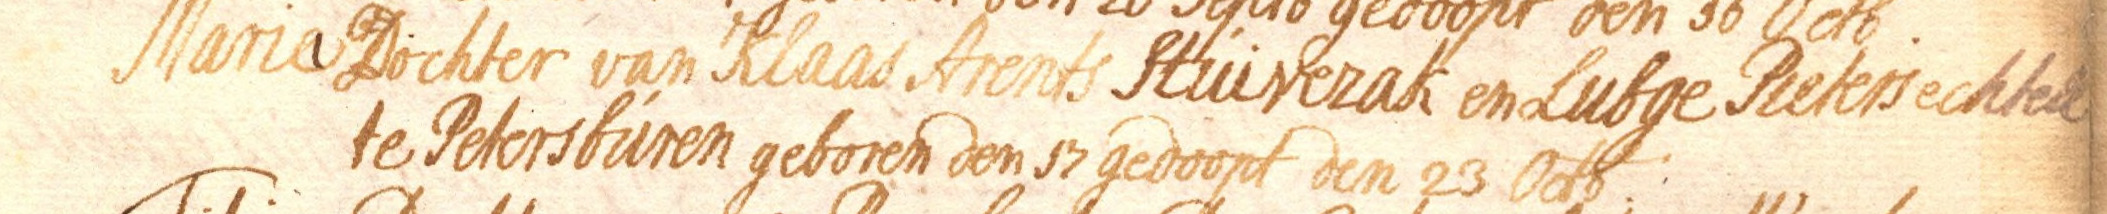 geboren den 20 Septb gedoopt den 16 Octb
Maria Dochter van Klaas Arents Stuivezak en Lubge Pieters echtel
te Petersbúren geboren den 17 gedoopt den 23 Octb.
Dochter